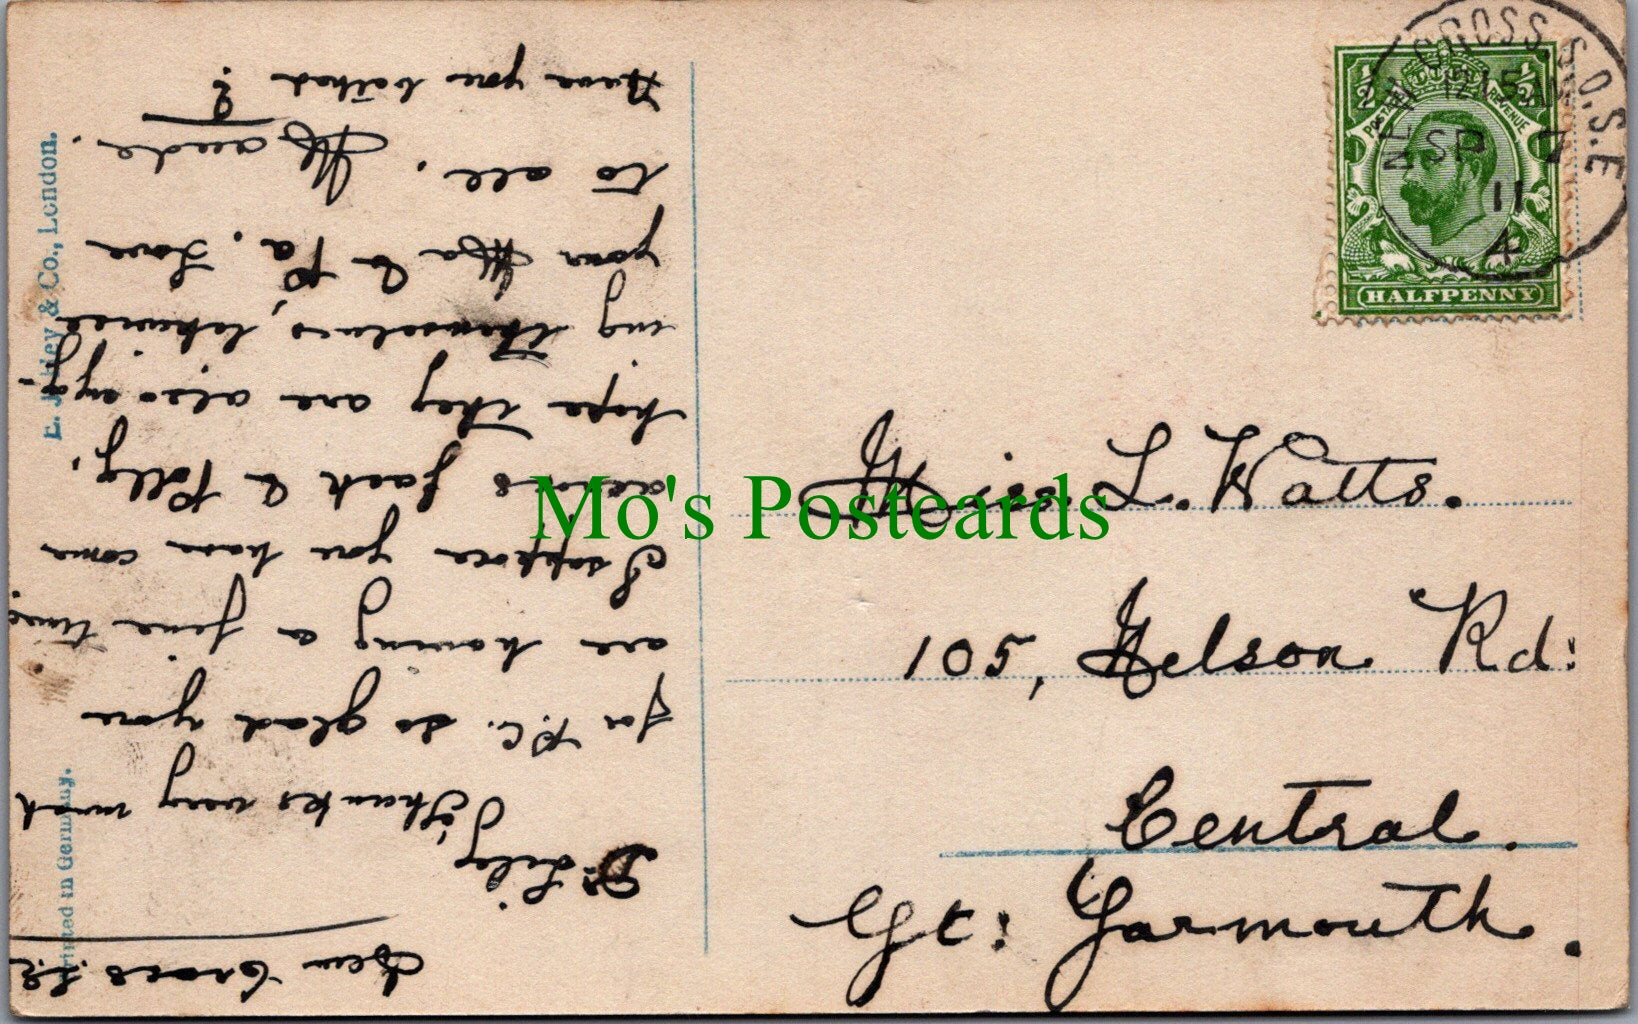 New Cross. S.E.
Dr Lily,
Thanks very much
for P.C. so glad you
are having a fine time,
I suppose you have come
across Jack & Polly,
hope they are also enjoy-
ing themselves, likewise
your Ma & Pa. Love
to all. Maude.
Have you bathed
?
Miss. L. Watts.
105, Nelson Rd:
Central.
Gt: Yarmouth.
NEW CROSS. S.O. S.E
12 15 AM
SP 7
11
4
½ ½
POSTAGE REVENUE
HALFPENNY
E. J. Hey & Co., London.
Printed in Germany.
Mo's Postcards